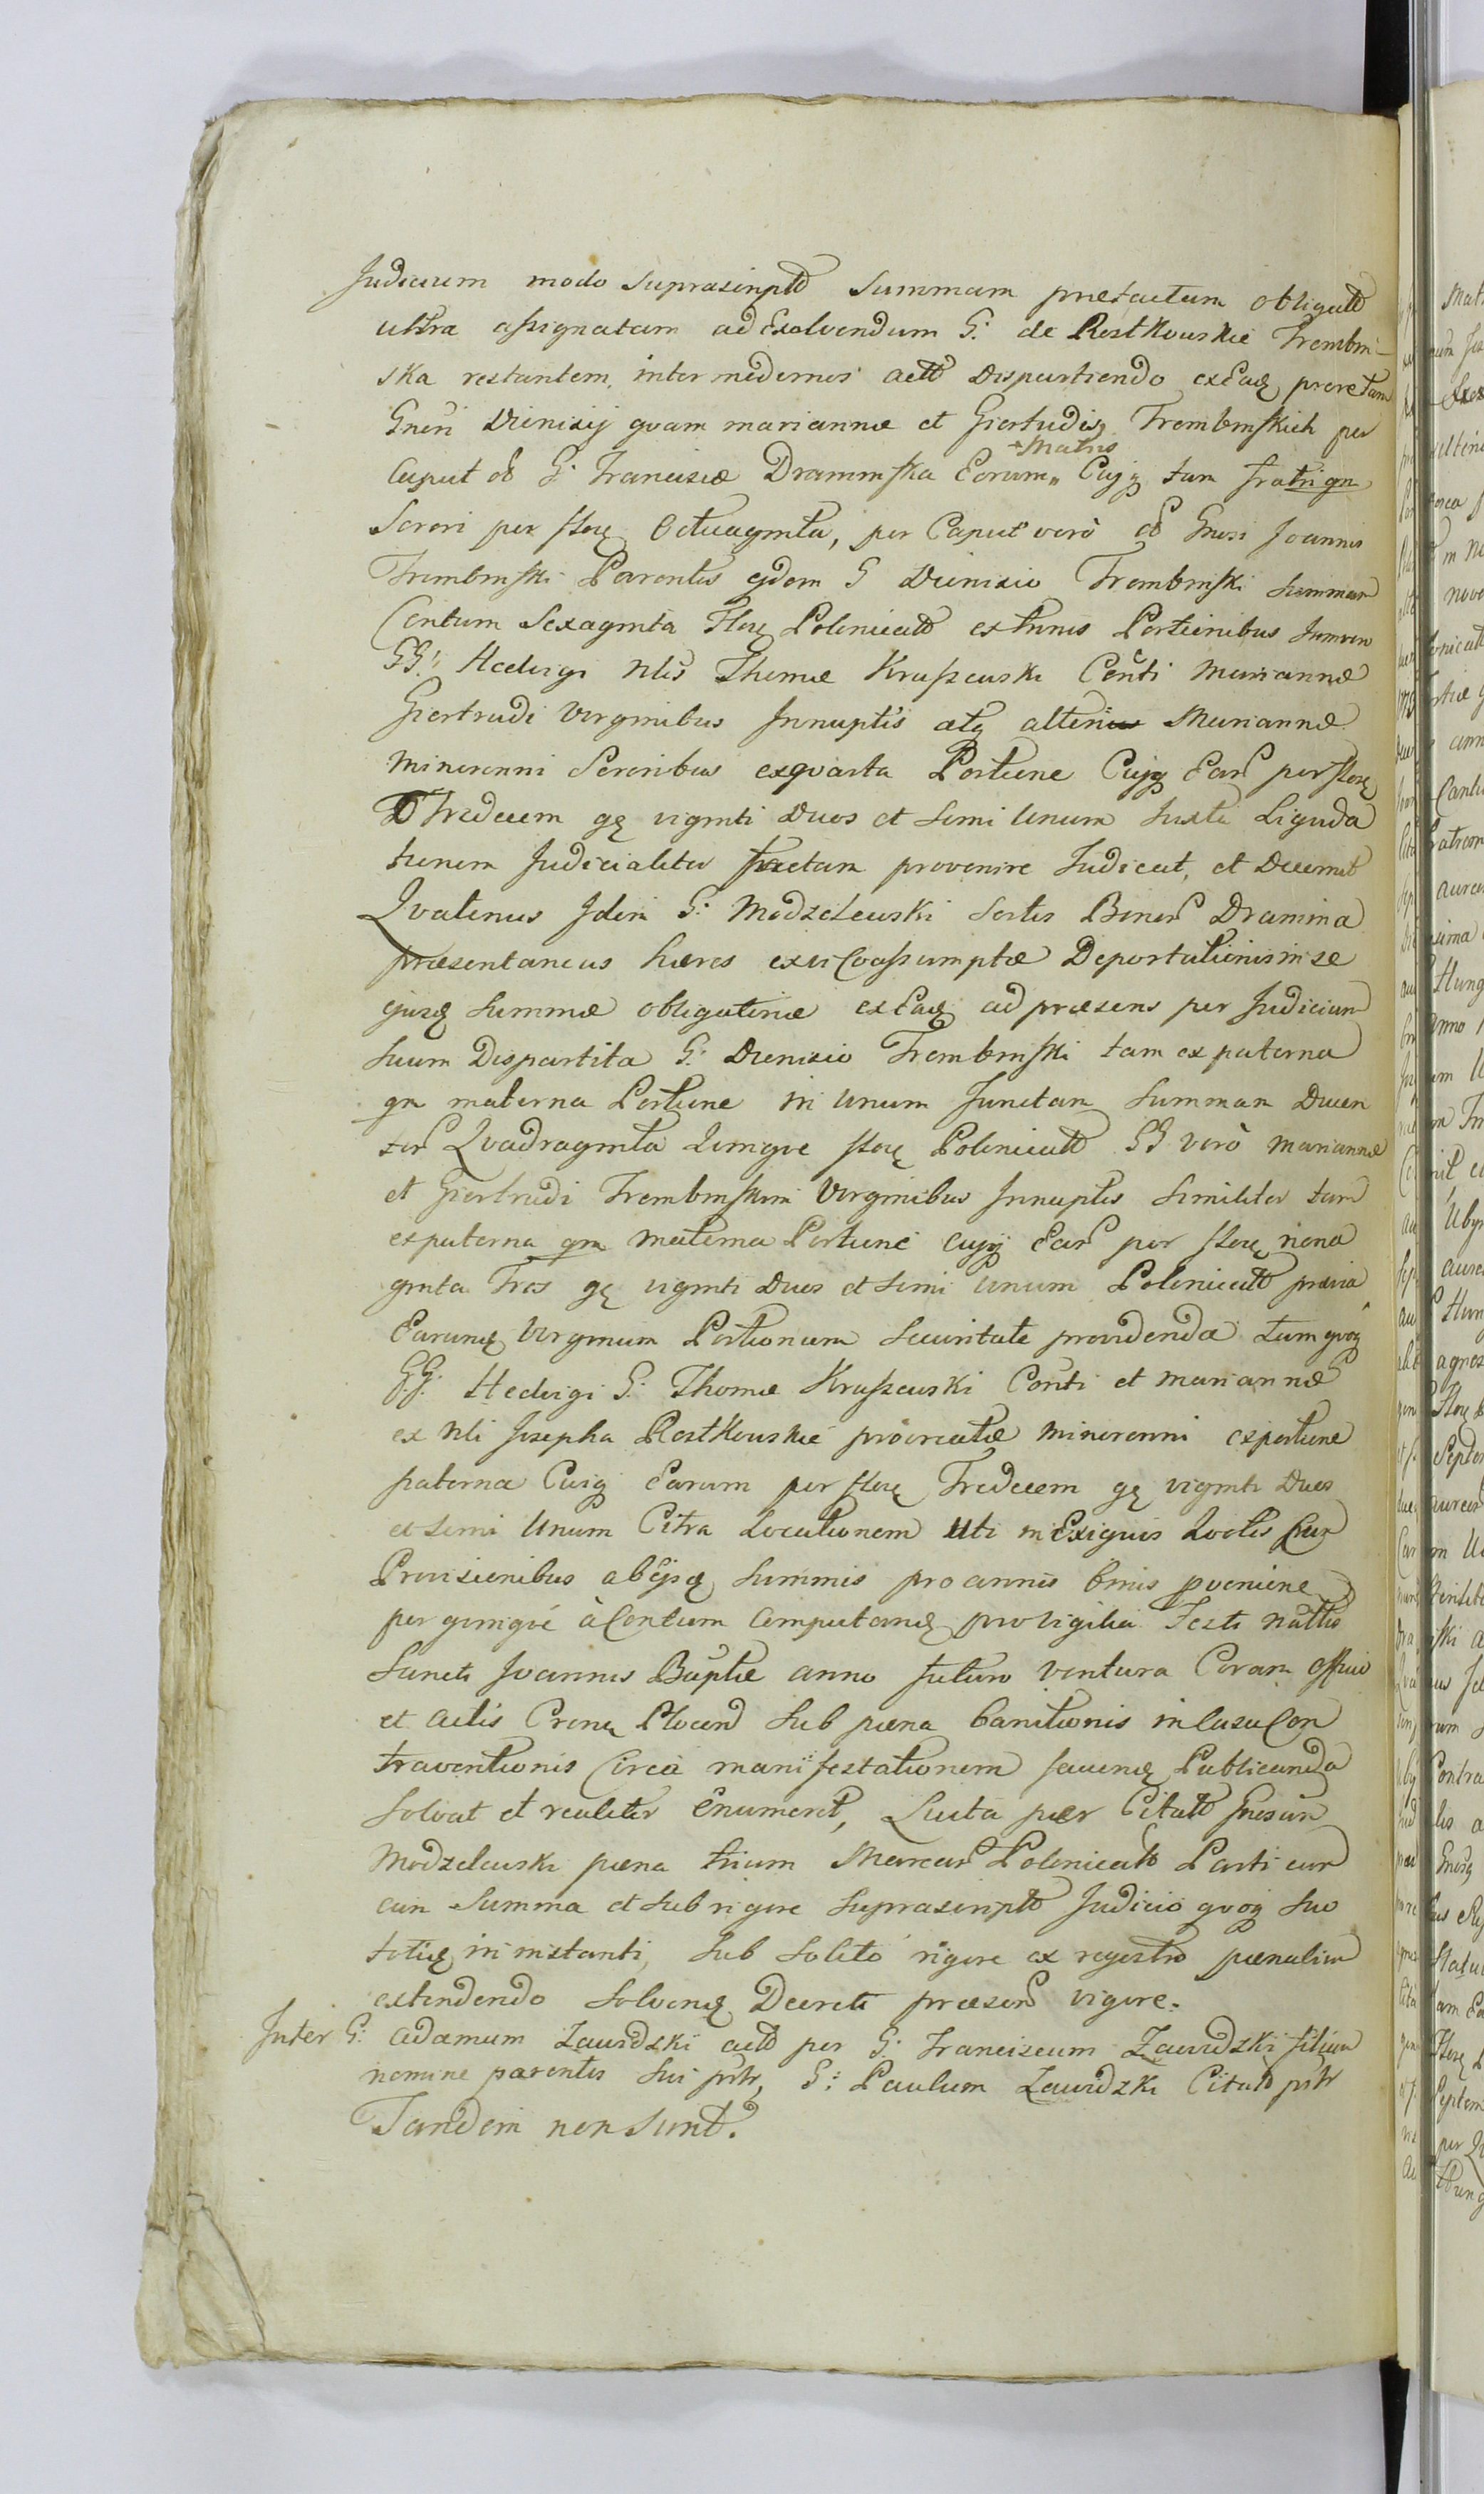 Judicium modo suprascripto Summam praefactam obligatt
ultra assignatam ad Exolvendum G: de Rostkowskie Trembin-
ska restantem, inter modernos actt dispartiendo ex Eaq proretam
Gnesi Dienisij quam mariannae et Giertudisq Trembinskich per
+ Matris
Caput ob G: Franciscae Draminska Eorum,, Cujq tam fratri qm
Sorori per floq Octuaginta, per Caput verò ob Gnosi Joannis
Trembinski Parentis ejdem G Dienisio Trembinski summam
Centum Sexaginta Floq Polonicatt ex tunis Portionibus
GG: Hedvigi Nlis Thomae Kruszewski Conti Mariannae
Giertrudi Virginibus Innuptis atq Mariannae
Minorenni Sororibus ex quarta Portione Cujq Ear per floq
Tredecem gq viginti Duos et Semi Unum Juxta Liquida
tionem Judicialiter factam provenire Judicat, et Decernit
Quatenus Idem G: Modzelewski Sortis Bonor Dramina
praesentaneus haeres ex vi Coassumptae Deportationis in se
ejusq Summae obligatinae ex Eaq ad praesens per Judicium
suum Dispartita G: Dienisio Trembinski tam ex paterna
qm materna Portione in Unum Junctam Summam Ducen
tor Quadraginta Quinque floq Polonicatt GG verò Mariannae
et Giertrudi Trembinskim Virginibus Innuptis Similiter tam
ex paterna qm Materna Portione Cujq Ear per floq nona
ginta Tres gq viginti Duos et Semi Unum Polonicatt praevia
Earumq Virginum Portionum Securitate providenda tum quoq
GG: Hedvigi G: Thomae Kruszewski Conti et Mariannae
ex Nli Josepha Rostkowskie procreatae Minorenni ex portione
paterna Cuiq Earum per floq Tredecem gq viginti Duos
et Semi Unum Citra Locationem Uti in Exiguis Quotis Cum
Provisionibus ab Ejsq Summis pro annis binis
per quinque à Centum Computanq pro vigilia Festi Nattis
Sancti Joannis Baptae anno futuro ventura Coram Offiio
et Actis Plocen Sub paena banitionis in Casu Con
traventionis Circa manifestationem Publicanda
Solvat et realiter Enumeret, Luita per Citatt Gnosum
Modzelewski paena trium Marcar Polonicatt Parti cum
cum Summa et Sub rigore Suprascriptt Judicio quoq Suo
totiq in instanti, Sub Solito rigore ex regestro paenalium
extendendo Solvenq Decreti praesen vigore.
Inter G: Adamum Zawidzki actt per G: Franciscum Zawidzki filium
nomine parentis sui G: Paulum Zawidzki Citatt
Tandem non Sunt.